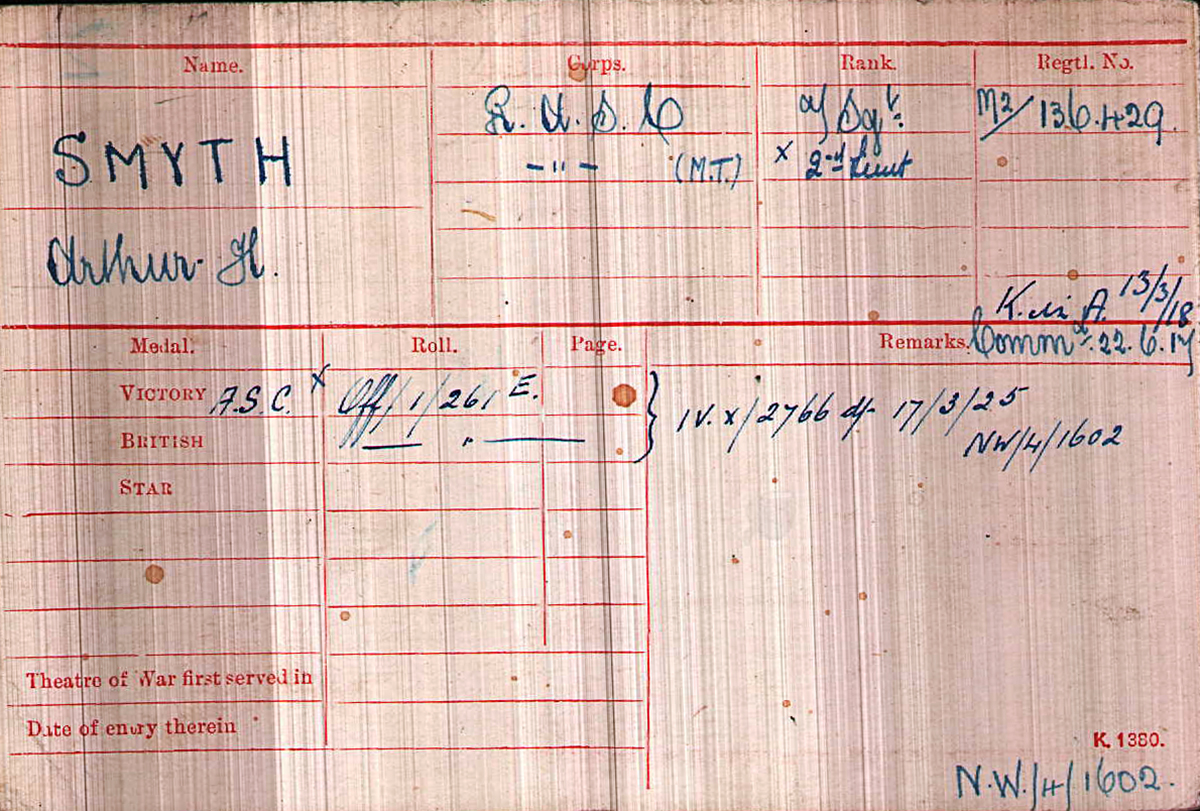 Name. Corps. Rank. Regtl. No.
SMYTH R. A. S. C a/Sgt. M2/136429.
-"- (M.T.) x 2nd Lieut
Arthur H.
K. in A. 13/3/18
Medal. Roll. Page. Remarks. Commd. 22.6.17
VICTORY A.S.C. x Off/1/261 E. } IV.X/2766 d/- 17/3/25
BRITISH — " — NW/4/1602
STAR
Theatre of War first served in
Date of entry therein
K. 1380.
N.W./4/1602.